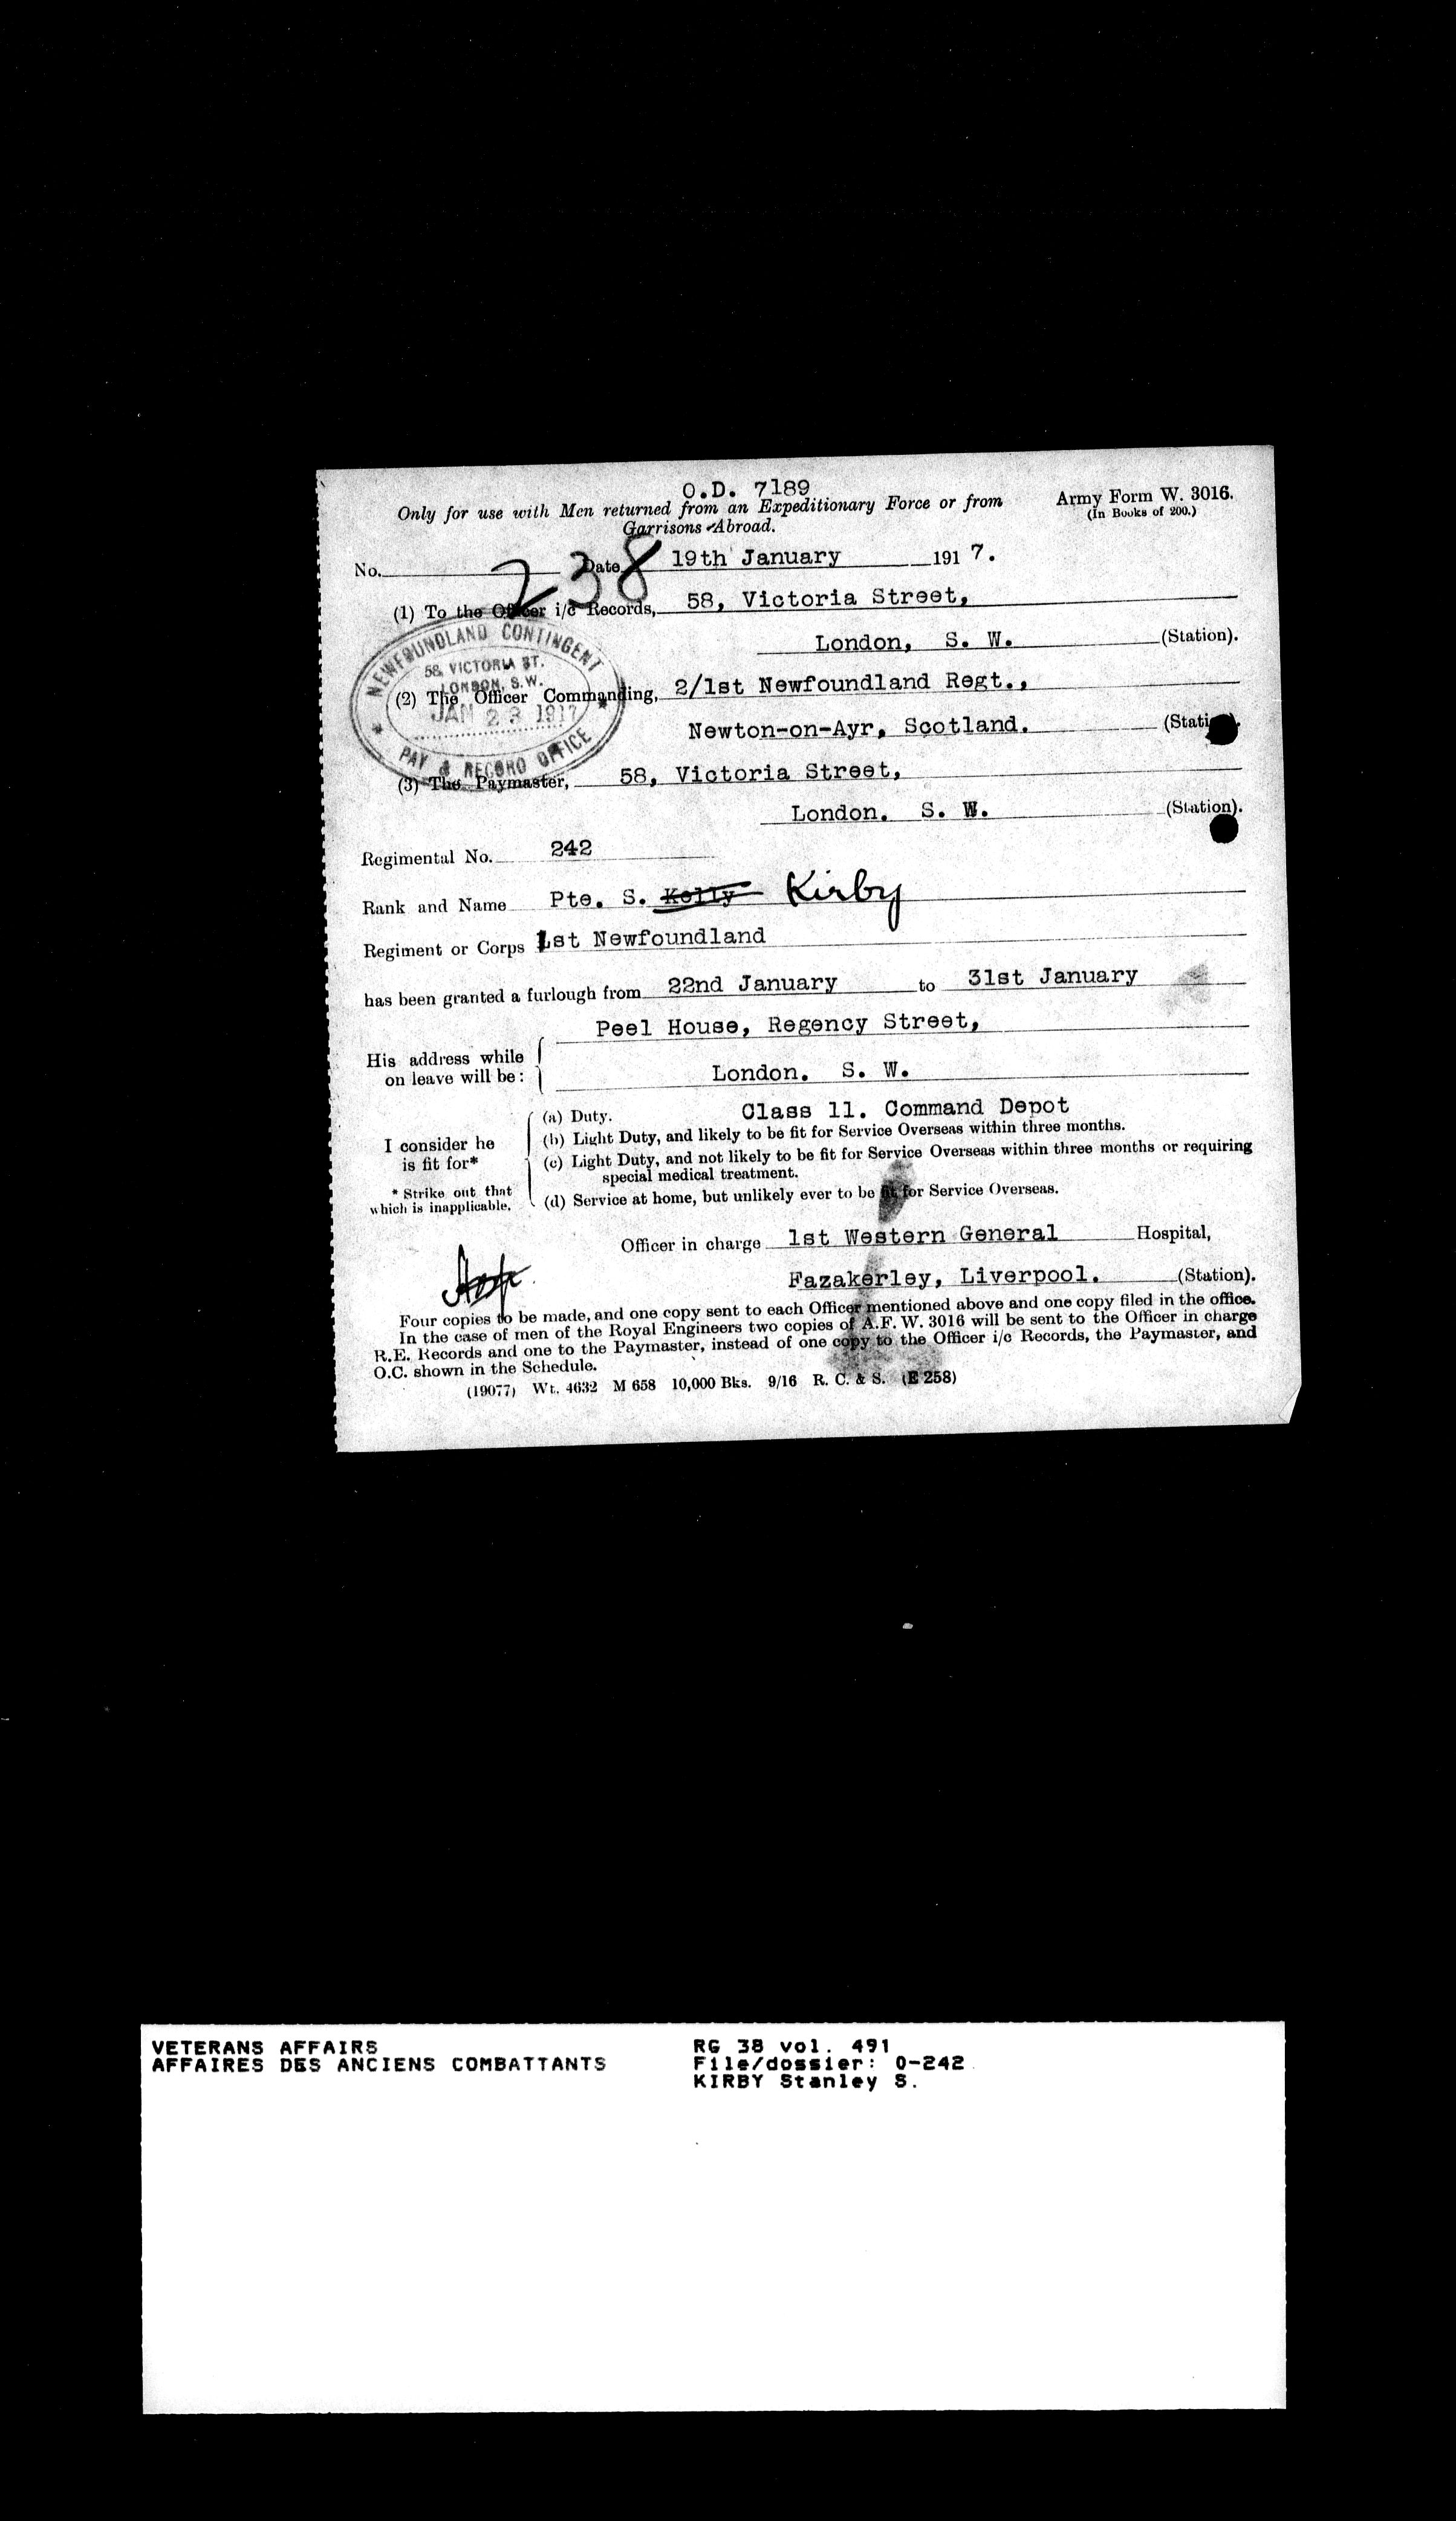 O.D. 7189
Only for use with Men returned from an Expeditionary Force or from
Garrisons Abroad.
Army Form W. 3016.
(In Books of 200.)
No. 238 Date 19th January 1917.
(1) To the Officer i/c Records, 58, Victoria Street,
London, S. W. (Station).
NEWFOUNDLAND CONTINGENT
58, VICTORIA ST.
LONDON, S.W.
JAN 23 1917
PAY & RECORD OFFICE
(2) The Officer Commanding, 2/1st Newfoundland Regt.,
Newton-on-Ayr, Scotland. (Station).
(3) The Paymaster, 58, Victoria Street,
London. S. W. (Station).
Regimental No. 242
Rank and Name Pte. S. Kelly Kirby
Regiment or Corps 1st Newfoundland
has been granted a furlough from 22nd January to 31st January
Peel House, Regency Street,
His address while
on leave will be:
London. S. W.
I consider he
is fit for*
* Strike out that
which is inapplicable.
(a) Duty. Class 11. Command Depot
(b) Light Duty, and likely to be fit for Service Overseas within three months.
(c) Light Duty, and not likely to be fit for Service Overseas within three months or requiring
special medical treatment.
(d) Service at home, but unlikely ever to be fit for Service Overseas.
Officer in charge 1st Western General Hospital,
Fazakerley, Liverpool. (Station).
Four copies to be made, and one copy sent to each Officer mentioned above and one copy filed in the office.
In the case of men of the Royal Engineers two copies of A.F. W. 3016 will be sent to the Officer in charge
R.E. Records and one to the Paymaster, instead of one copy to the Officer i/c Records, the Paymaster, and
O.C. shown in the Schedule.
(19077) Wt. 4632 M 658 10,000 Bks. 9/16 R. C. & S. (E 258)
VETERANS AFFAIRS
AFFAIRES DES ANCIENS COMBATTANTS
RG 38 vol. 491
File/dossier: 0-242
KIRBY Stanley S.